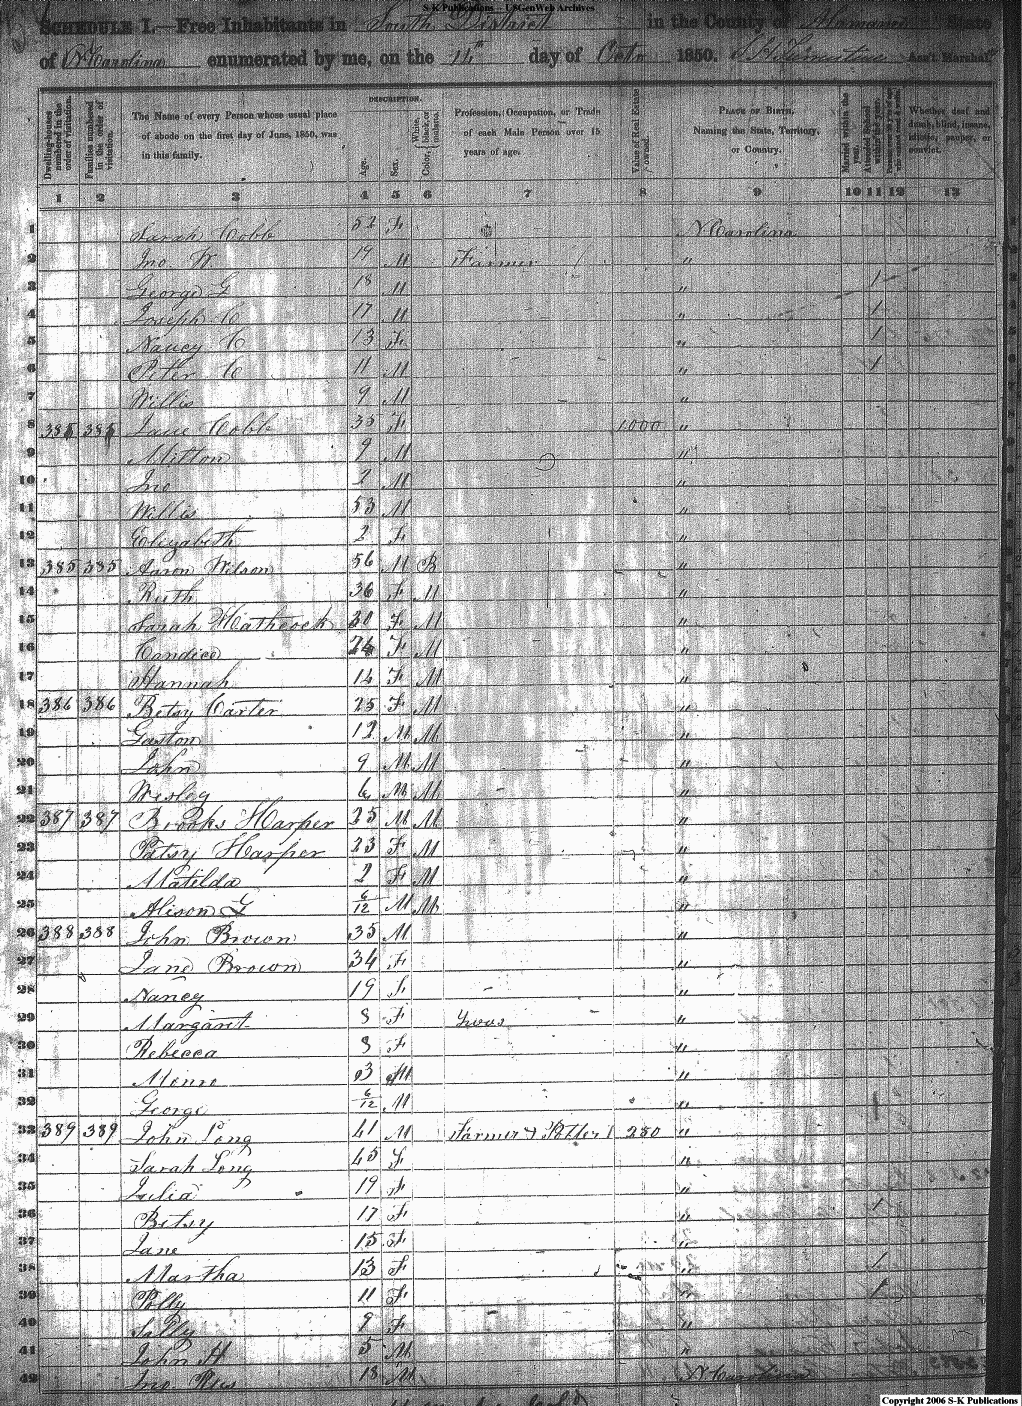 S-K Publications — USGenWeb Archives
SCHEDULE I.—Free Inhabitants in South District in the County of Alamance State
of N Carolina enumerated by me, on the 14th day of Octr 1850. Ass't Marshal.
Dwelling-houses numbered in the order of visitation.
Families numbered in the order of visitation.
The Name of every Person whose usual place of abode on the first day of June, 1850, was in this family.
DESCRIPTION.
Age.
Sex.
Color, White, black, or mulatto.
Profession, Occupation, or Trade of each Male Person over 15 years of age.
Value of Real Estate owned.
PLACE OF BIRTH. Naming the State, Territory, or Country.
Married within the year.
Attended School within the year.
Whether deaf and dumb, blind, insane, idiotic, pauper, or convict.
1 2 3 4 5 6 7 8 9 10 11 12 13
1 Sarah Cobb 52 F N Carolina
2 Jno. W. 19 M Farmer "
3 George G 18 M " 1
4 Joseph C 17 M " 1
5 Nancy C 13 F " 1
6 Peter C 11 M " 1
7 Willis 9 M "
8 Jane Cobb 35 F 1000 "
9 Milton 9 M "
10 Jno 2 M "
11 Willis 53 M "
12 Elizabeth 2 F "
13 385 385 Aaron Wilson 56 M B "
14 Ruth 36 F M "
15 Sarah Hathcock 30 F M "
16 Candice F M "
17 Hannah 14 F M "
18 386 386 Betsy Carter 25 F M "
19 Gaston 12 M M "
20 John 9 M M "
21 Wesley 6 M M "
22 387 387 Brooks Harper 25 M M "
23 Patsy Harper 23 F M "
24 Matilda 2 F M "
25 Alison G 6/12 M M "
26 388 388 John Brown 35 M "
27 Jane Brown 34 F "
28 Nancy 19 F "
29 Margaret 8 F "
30 Rebecca 8 F "
31 Monro 3 M "
32 George 6/12 M " 1
33 389 389 John Long 41 M Farmer & Potter 250 "
34 Sarah Long 45 F "
35 Julia 19 F "
36 Betsy 17 F " 1
37 Jane 15 F "
38 Martha 13 F " 1
39 Polly 11 F " 1
40 Sally 9 F "
41 John H 5 M "
42 Jno. 18 M N Carolina
Copyright 2006 S-K Publications